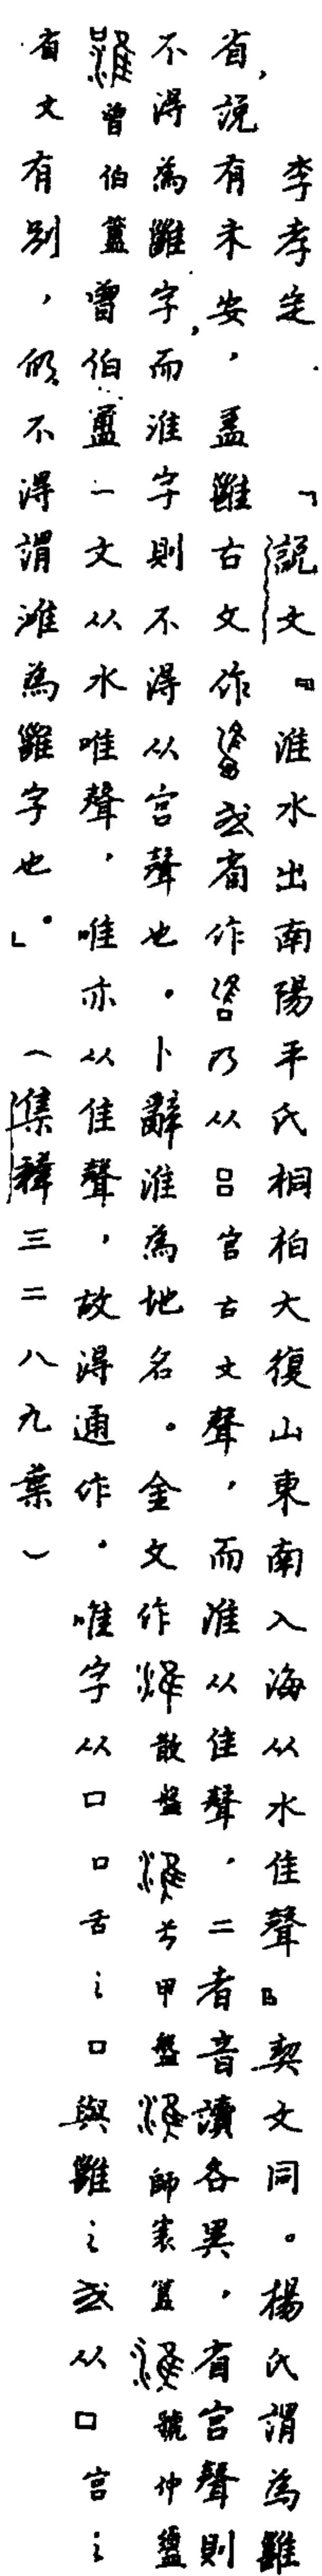 李孝定.「說文『淮水出南陽平氏桐柏大復山東南入海从水隹聲』契文同。楊氏謂為雝
省,說有未安,盖雝古文作或省作乃从吕宫古文聲,而淮从隹聲,二者音讀各異,省宫聲則
不得為雝字,而淮字則不得从宫聲也。卜辭淮為地名。金文作散盤兮甲盤師㝨簋虢仲盨
曾伯簠曾伯簠一文从水唯聲,唯亦从隹聲,故得通作。唯字从口口舌之口與雝之或从口宫之
省文有別,似不得謂淮為雝字也。」(集釋三二八九葉)